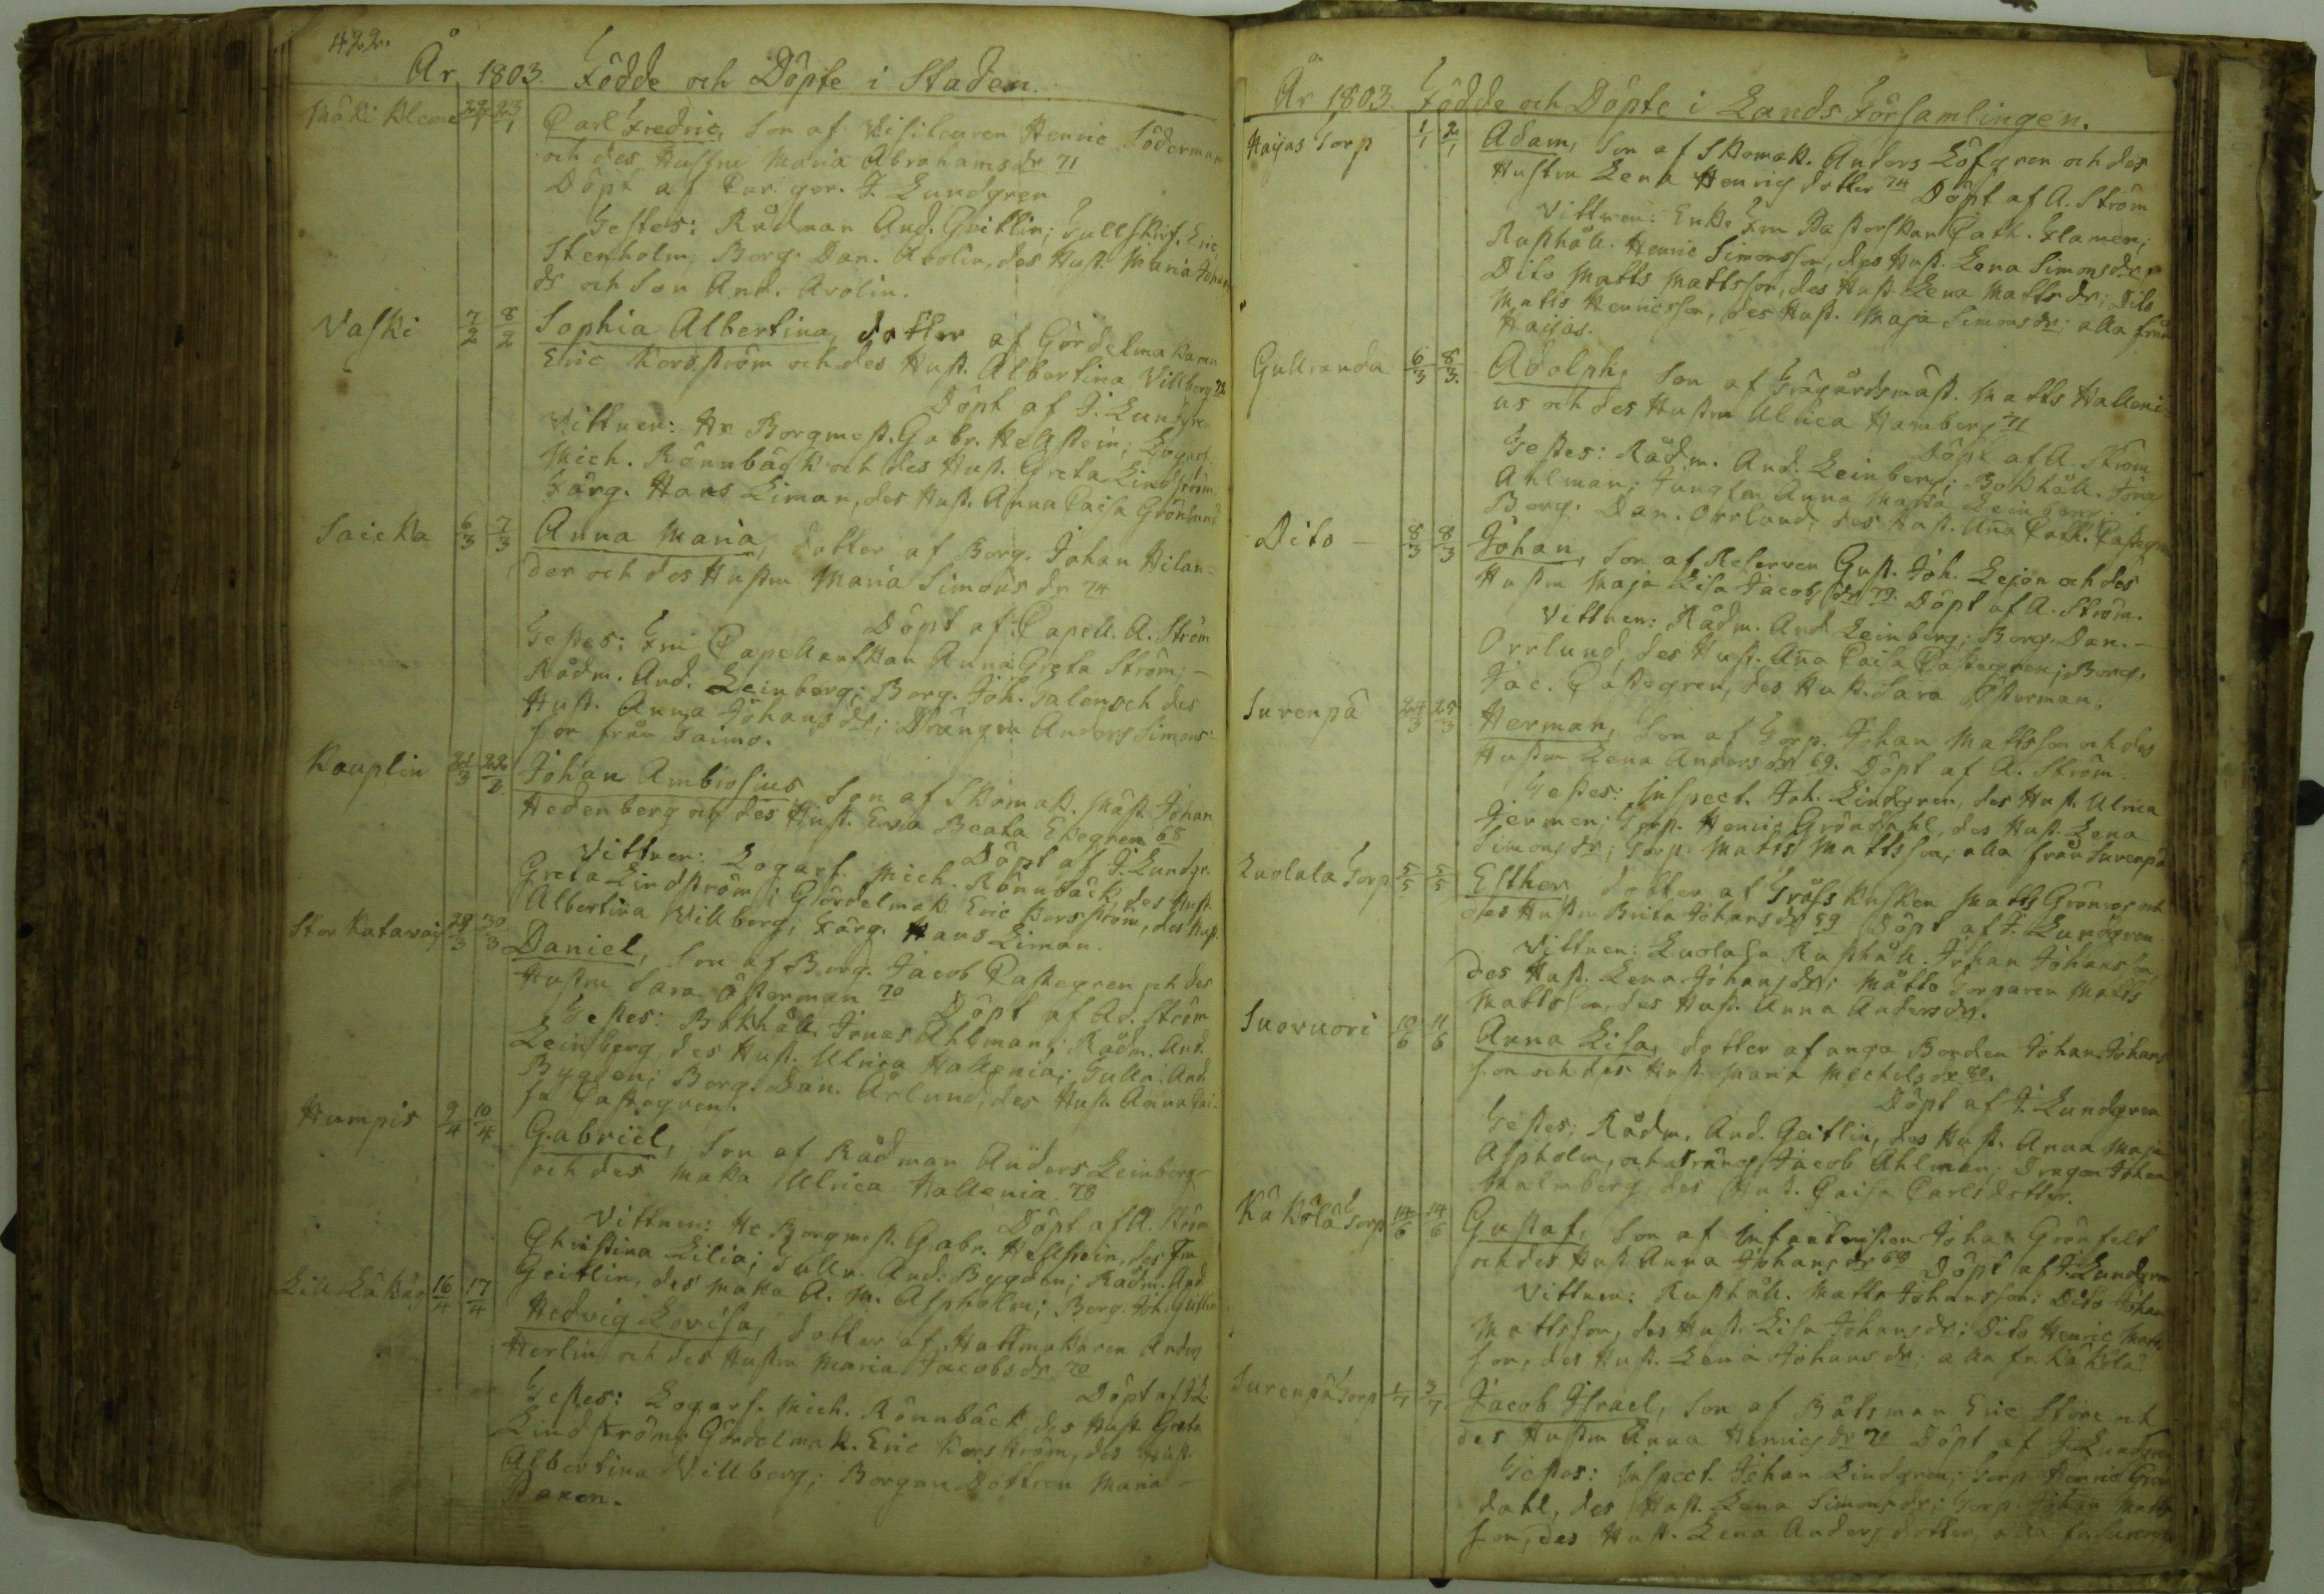 422.
År 1803. Födde och Döpte i Staden.
Mäki Kleme 22/1 23/1 Carl Fredric, Son af Visiteuren Henric Söderman
och des Hustru Maria Abrahamsdr 71
Döpt af Cur. ger. J. Lundgren
Testes: Rådman And. Geitlin; Tullskrif. Eric
Stenholm, Borg. Dan. Arolin, des Hust. Maria Johans
dr och Son And. Arolin.
Vaski 7/2 8/2 Sophia Albertina, dotter af Gördelmakaren
Eric Korsström och des Hust. Albertina Villberg 72
Döpt af J. Lundgren
Vittnen: Hr Borgmest. Gabr. Hellstein; Logarf.
Mich. Rönnbäck och des Hust. Greta Lindström;
Färg. Hans Liman, des Hust. Anna Caisa Grönlund
Saicka 6/3 7/3 Anna Maria, dotter af Borg. Johan Hilan=
der och des Hustru Maria Simons dr 74
Döpt af Capell. A. Ström
Testes: Fru Capellanskan Anna Greta Ström; –
Rådm. And. Leinberg; Borg. Joh. Salen och des
Hust. Anna Johans dr; Drängen Anders Simons=
son från Saimo.
Kauplin 21/3 22/3 Johan Ambrosius, Son af Skomak. Mäst. Johan
Hedenberg och des Hust. Eva Beata Ekegren 68
Döpt af J. Lundgr.
Vittnen: Logarf. Mich. Rönnbäck, des Hust.
Greta Lindström; Gördelmak. Eric Korsström, des Hust.
Albertina Villberg; Färg. Hans Liman.
Stor Katavais 29/3 30/3 Daniel, Son af Borg. Jacob Castegren och des
Hustru Sara Österman 70
Döpt af Ad. Ström
Testes: Bokhåll. Jonas Ahlman; Rådm. And.
Leinberg, des Hust. Ulrica Hallenia; Tulln. And.
Bygden; Borg. Dan. Ärlund, des Hust. Anna Cai=
sa Castegren.
Humpis 9/4 10/4 Gabriel, Son af Rådman Anders Leinberg
och des Maka Ulrica Hallenia. 78
Döpt af A. Ström
Vittnen: Hr Borgmest. Gabr. Hellstein, des Fru
Christina Lilia; Tulln. And. Bygden; Rådm. And
Geitlin, des Maka A. M. Aspholm; Borg. Joh. Geitlin
Lill Läkäri 16/4 17/4 Hedvig Lovisa, dotter af Hattmakaren Anders
Herlin och des Hustru Maria Jacobs dr 70
Döpt af J. L.
Testes: Logarf. Mich. Rönnbäck, des Hust. Greta
Lindström; Gördelmak. Eric Korsström, des Hust.
Albertina Villberg; Borgare Dottren Maria –
Paxen.
År 1803. Födde och Döpte i Lands Församlingen.
Haijas Torp 1/1 2/1 Adam, Son af Skomak. Anders Löfgren och des
Hustru Lena Henrics dotter 74 Döpt af A. Ström
Vittnen: Enke Fru Pastorskan Cath. Flamen;
Rusthåll. Henric Simonsson, des Hust. Lena Simonsdr;
Dito Matts Mattsson, des Hust. Lena Matts dr; Dito
Matts Henricsson, des Hust. Maja Simons dr; alla från
Haijas.
Gullranda 6/3 8/3 Adolph, Son af Trägårdsmäst. Matts Halleni=
us och des Hustru Ulrica Hamberg 71
Döpt af A. Ström
Testes: Rådm. And. Leinberg; Bokhåll. Jonas
Ahlman; Jungfru Anna Maria Leinberg;
Borg. Dan. Orrlund, des Hust. Anna Cath. Castegren
Dito – 8/3 8/3 Johan, Son af Reserven Gust. Joh. Lejon och des
Hustru Maja Lisa Jacobs dr 79. Döpt af A. Ström.
Vittnen: Rådm. And. Leinberg; Borg. Dan. –
Orrlund, des Hust. Anna Caisa Castegren; Borg.
Jac. Castegren, des Hust. Sara Österman.
Surenpä 24/3 25/3 Herman, Son af Torp. Johan Mattsson och des
Hustru Lena Anders dr 69. Döpt af A. Ström.
Testes: Inspect. Joh. Lindgren, des Hust. Ulrica
Fermen; Torp. Henric Gröndahl, des Hust. Lena
Simons dr; Torp. Matts Mattsson, alla från Surenpä
Luolala Torp 5/5 5/5 Esther, dotter af Gråsskusken Matts Grönroos och
des Hustru Brita Johans dr 59 Döpt af J. Lundgren
Vittnen: Luolala Rusthåll. Johan Johansson,
des Hust. Lena Johans dr; Mätto Torparen Matts
Mattsson, des Hust. Anna Andersdr.
Suovuori 10/6 11/6 Anna Lisa, dotter af unga Bonden Johan Johans
son och des Hust. Maria Michels dr 80.
Döpt af J. Lundgren
Testes: Rådm. And. Geitlin, des Hust. Anna Maja
Aspholm, och dräng Jacob Ahlman; Dragon Johan
Malmberg, des Hust. Caisa Carlsdotter.
Käkölä Torp 14/6 14/6 Gustaf, Son af Infanteristen Johan Grönfelt
och des Hust. Anna Johans dr 60 Döpt af J. Lundgren
Vittnen: Rusthåll. Matts Johansson; Dito Johan
Mattsson, des Hust. Lisa Johans dr; Dito Henric Matts
son, des Hust. Lena Johans dr; alla fr. Käkölä
Surenpä Torp 1/7 3/7 Jacob Israel, Son af Båtsman Eric Store och
des Hustru Anna Henrics dr 71 Döpt af J. Lundgren
Testes: Inspect. Johan Lindgren; Torp. Henric Grön
dahl, des Hust. Lena Simons dr; Torp. Johan Matts
son, des Hust. Lena Andersdotter, alla fr. Surenpä